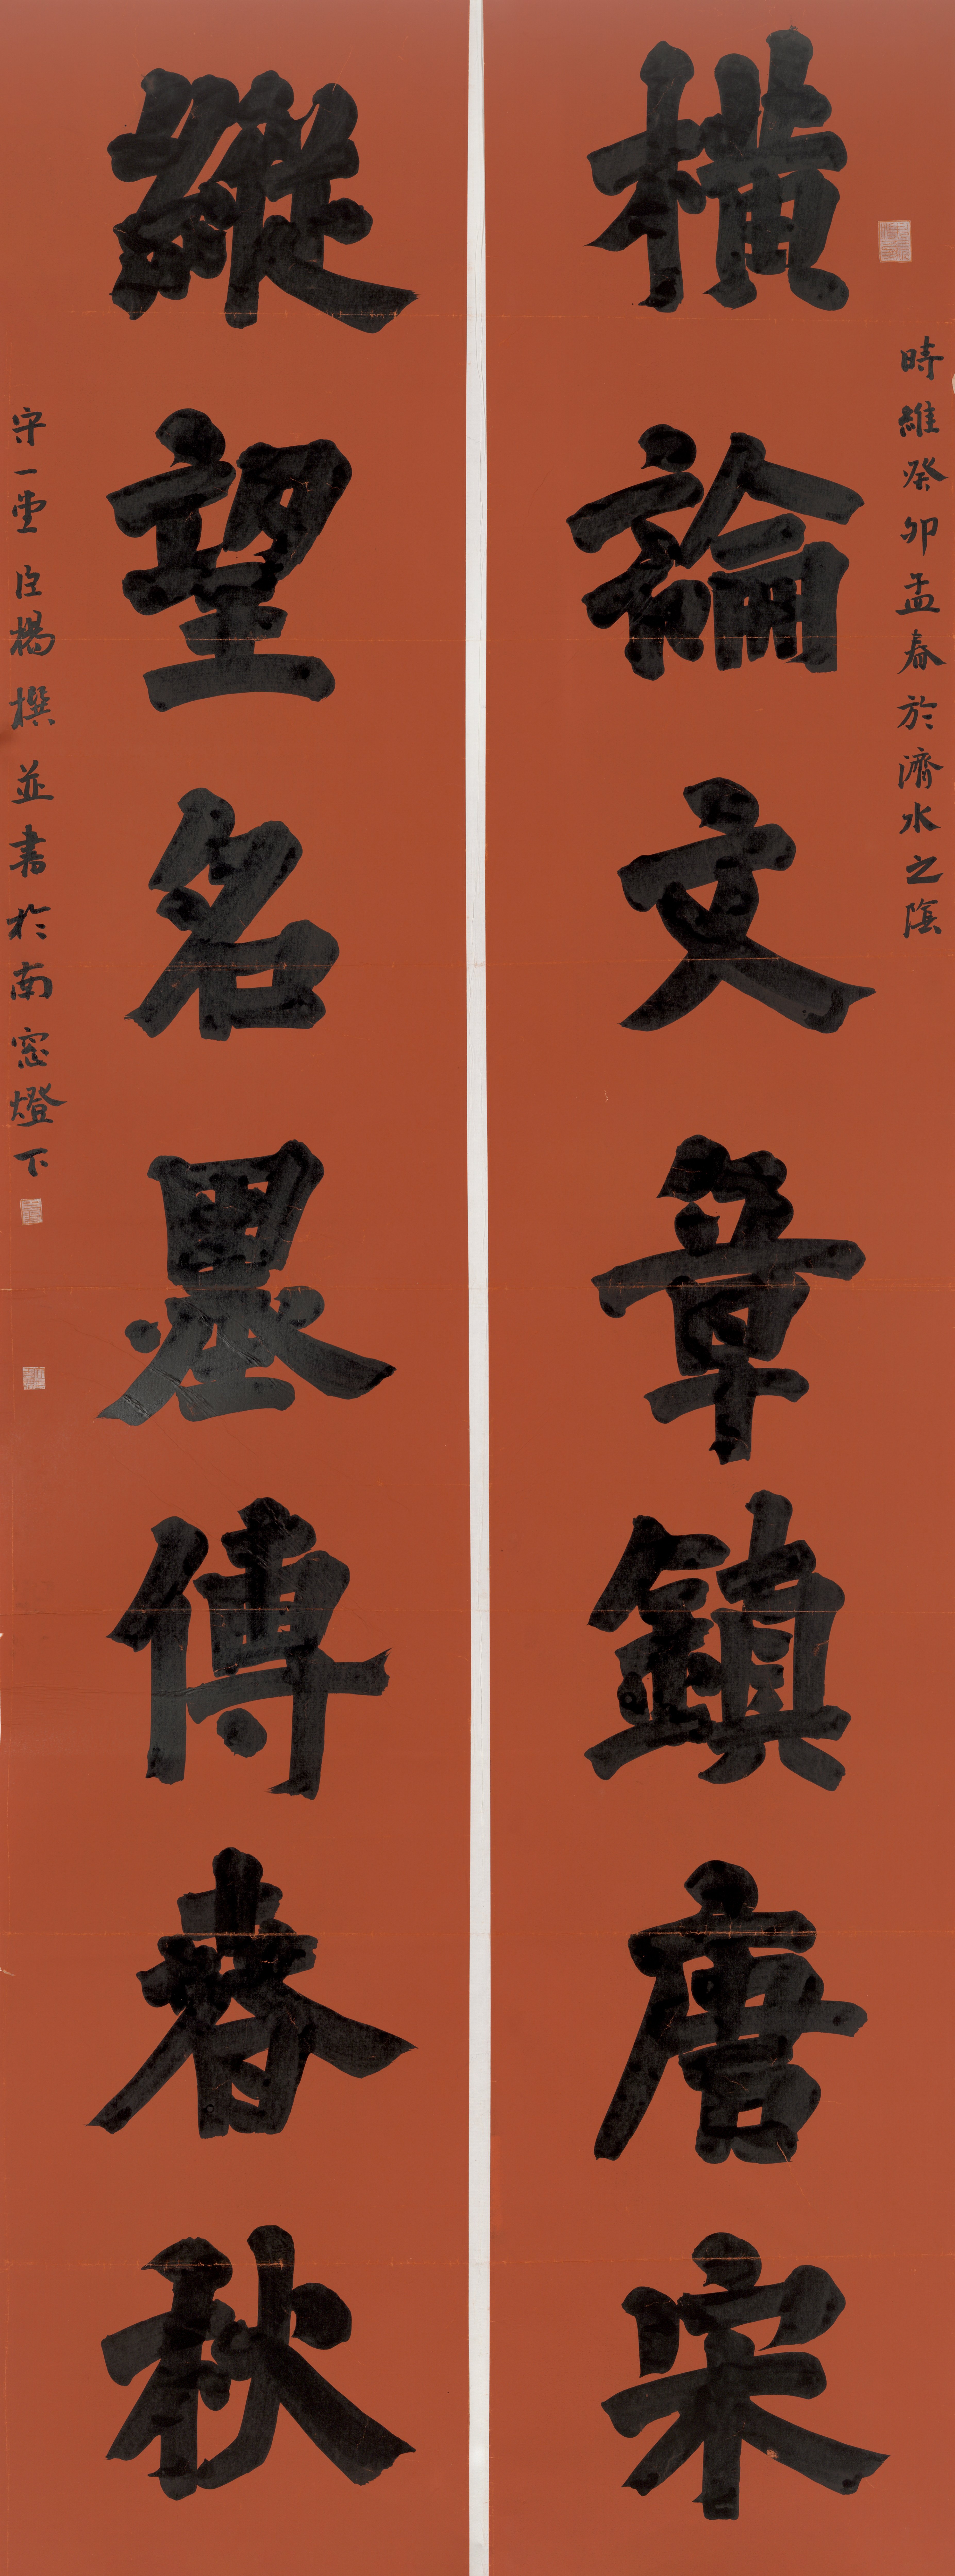 時維癸卯孟春於濟水之陰
橫論文章鎮唐宋
縱望名墨傳春秋
守一堂臣楊撰並書於南窓燈下